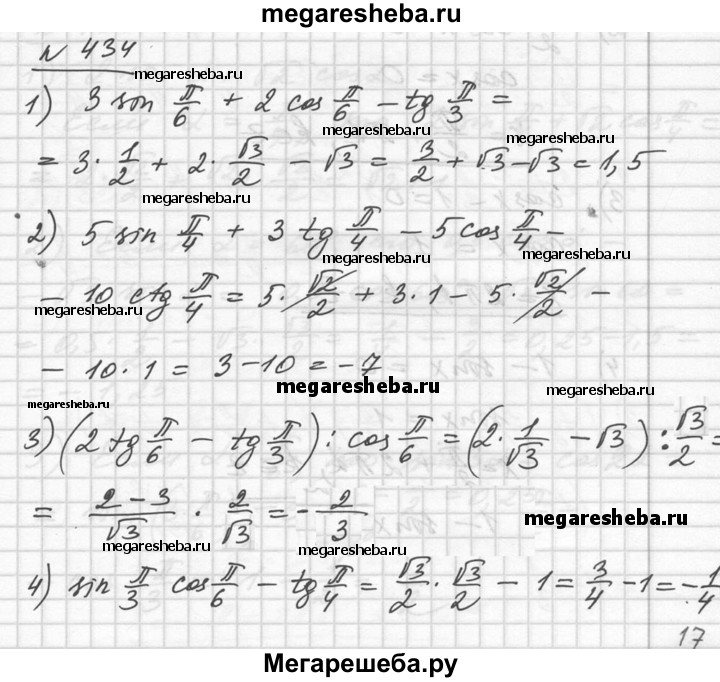 megaresheba.ru
№ 434
megaresheba.ru
1) 3 sin π/6 + 2 cos π/6 - tg π/3 =
megaresheba.ru megaresheba.ru
= 3 · 1/2 + 2 · √3/2 - √3 = 3/2 + √3 - √3 = 1,5
megaresheba.ru
2) 5 sin π/4 + 3 tg π/4 - 5 cos π/4 -
megaresheba.ru megaresheba.ru
- 10 ctg π/4 = 5 · √2/2 + 3 · 1 - 5 · √2/2 -
megaresheba.ru megaresheba.ru
- 10 · 1 = 3 - 10 = -7
megaresheba.ru megaresheba.ru
megaresheba.ru
3) (2 tg π/6 - tg π/3) : cos π/6 = (2 · 1/√3 - √3) : √3/2 =
megaresheba.ru
= 2-3/√3 · 2/√3 = -2/3
megaresheba.ru megaresheba.ru
4) sin π/3 cos π/6 - tg π/4 = √3/2 · √3/2 - 1 = 3/4 - 1 = -1/4
megaresheba.ru megaresheba.ru
17
Мегарешеба.ру